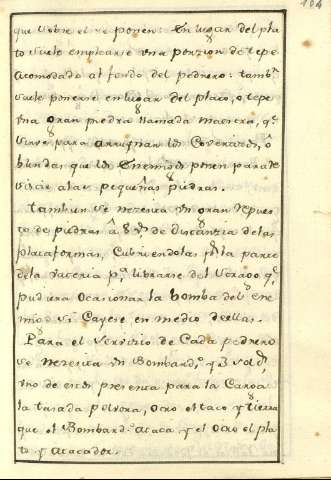 104
que sobre el se ponen: En lugar del pla
to suele emplearse una porzion de tepe
acomodado al fondo del pedrero: tambn
suele ponerse en lugar del plato, o tepe
una gran piedra llamada maestra, qe
sirve para arruynar los Coverarios, ô
blindas que los Enemigos ponen para re
sistir a las pequeñas piedras.
Tambien se necesita un gran repues
to de piedras à 8 de distanzia de las
plataformas, Cubriendolas pr la parte
de la vateria pa librarse del estrago qe
pudiera Ocasionar la bomba del ene
migo si Cayese en medio de ellas.
Para el Servizio de Cada pedrero
se necesita un Bombardo y 3 sold
uno de estos presenta para la Carga
la tasada polvora, otro el taco y tierra
que el Bombardo ataca y el otro el pla
to y atacador.